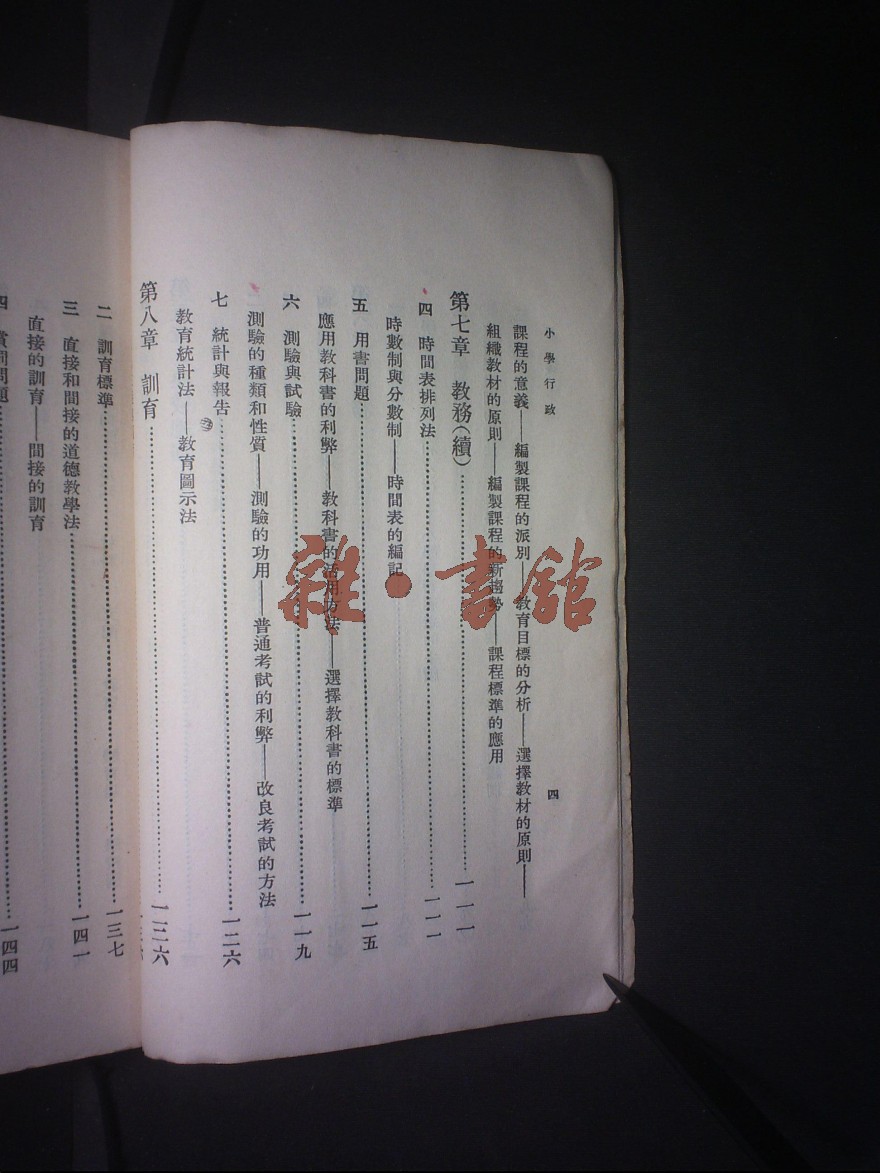 小學行政
四
課程的意義——編製課程的派別——教育目標的分析——選擇教材的原則——
組織教材的原則——編製課程的新趨勢——課程標準的應用
第七章　教務(續)……一一一
四　時間表排列法……一一一
時數制與分數制——時間表的編記
五　用書問題……一一五
應用教科書的利弊——教科書的活用方法——選擇教科書的標準
六　測驗與試驗……一一九
測驗的種類和性質——測驗的功用——普通考試的利弊——改良考試的方法
七　統計與報告……一二六
教育統計法——教育圖示法
第八章　訓育……
二　訓育標準……一三七
三　直接和間接的道德教學法……一四一
直接的訓育——間接的訓育
四　賞罰問題……一四四
雜·書館